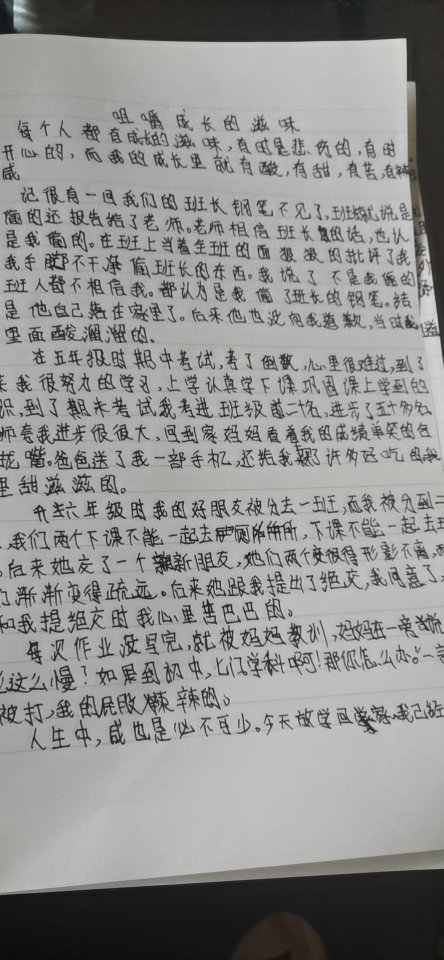 咀嚼成长的滋味
每个人都有成长的滋味，有时是悲伤的，有时
开心的，而我的成长里就有酸，有甜，有苦，有辣
咸
记很有一回我们的班长钢笔不见了，班长就说是
偷的还报告给了老师。老师相信班长的话，也认
是我偷的。在班上当着全班的面狠狠的批评了我
我手脚不干净偷班长的东西。我说了不是我偷的
班人都不相信我。都认为是我偷了班长的钢笔。结
是他自己落在家里了。后来他也没向我道歉，当时我
里面酸溜溜的。
在五年级时期中考试，考了倒数，心里很难过，到了
来我很努力的学习，上学认真学下课巩固课上学到的
识，到了期末考试我考进班级前二十名，进步了五十多名
师夸我进步很很大，回到家妈妈看着我的成绩单笑的合
拢嘴。爸爸送了我一部手机，还给我买了许多好吃的我
里甜滋滋的。
升六年级时我的好朋友被分去一班，而我被分到二
我们两个下课不能一起去厕所，下课不能一起去
。后来她交了一个新朋友，她们两个变很得形影不离，而
们渐渐变得疏远。后来她跟我提出了绝交，我同意了
和我提绝交时我心里苦巴巴的。
每次作业没写完，就被妈妈教训，妈妈在一旁说
这么慢？如果到初中，七门学科啊！那你怎么办。”一
被打，我的屁股辣辣的。
人生中，咸也是必不可少。今天放学回家，我己的